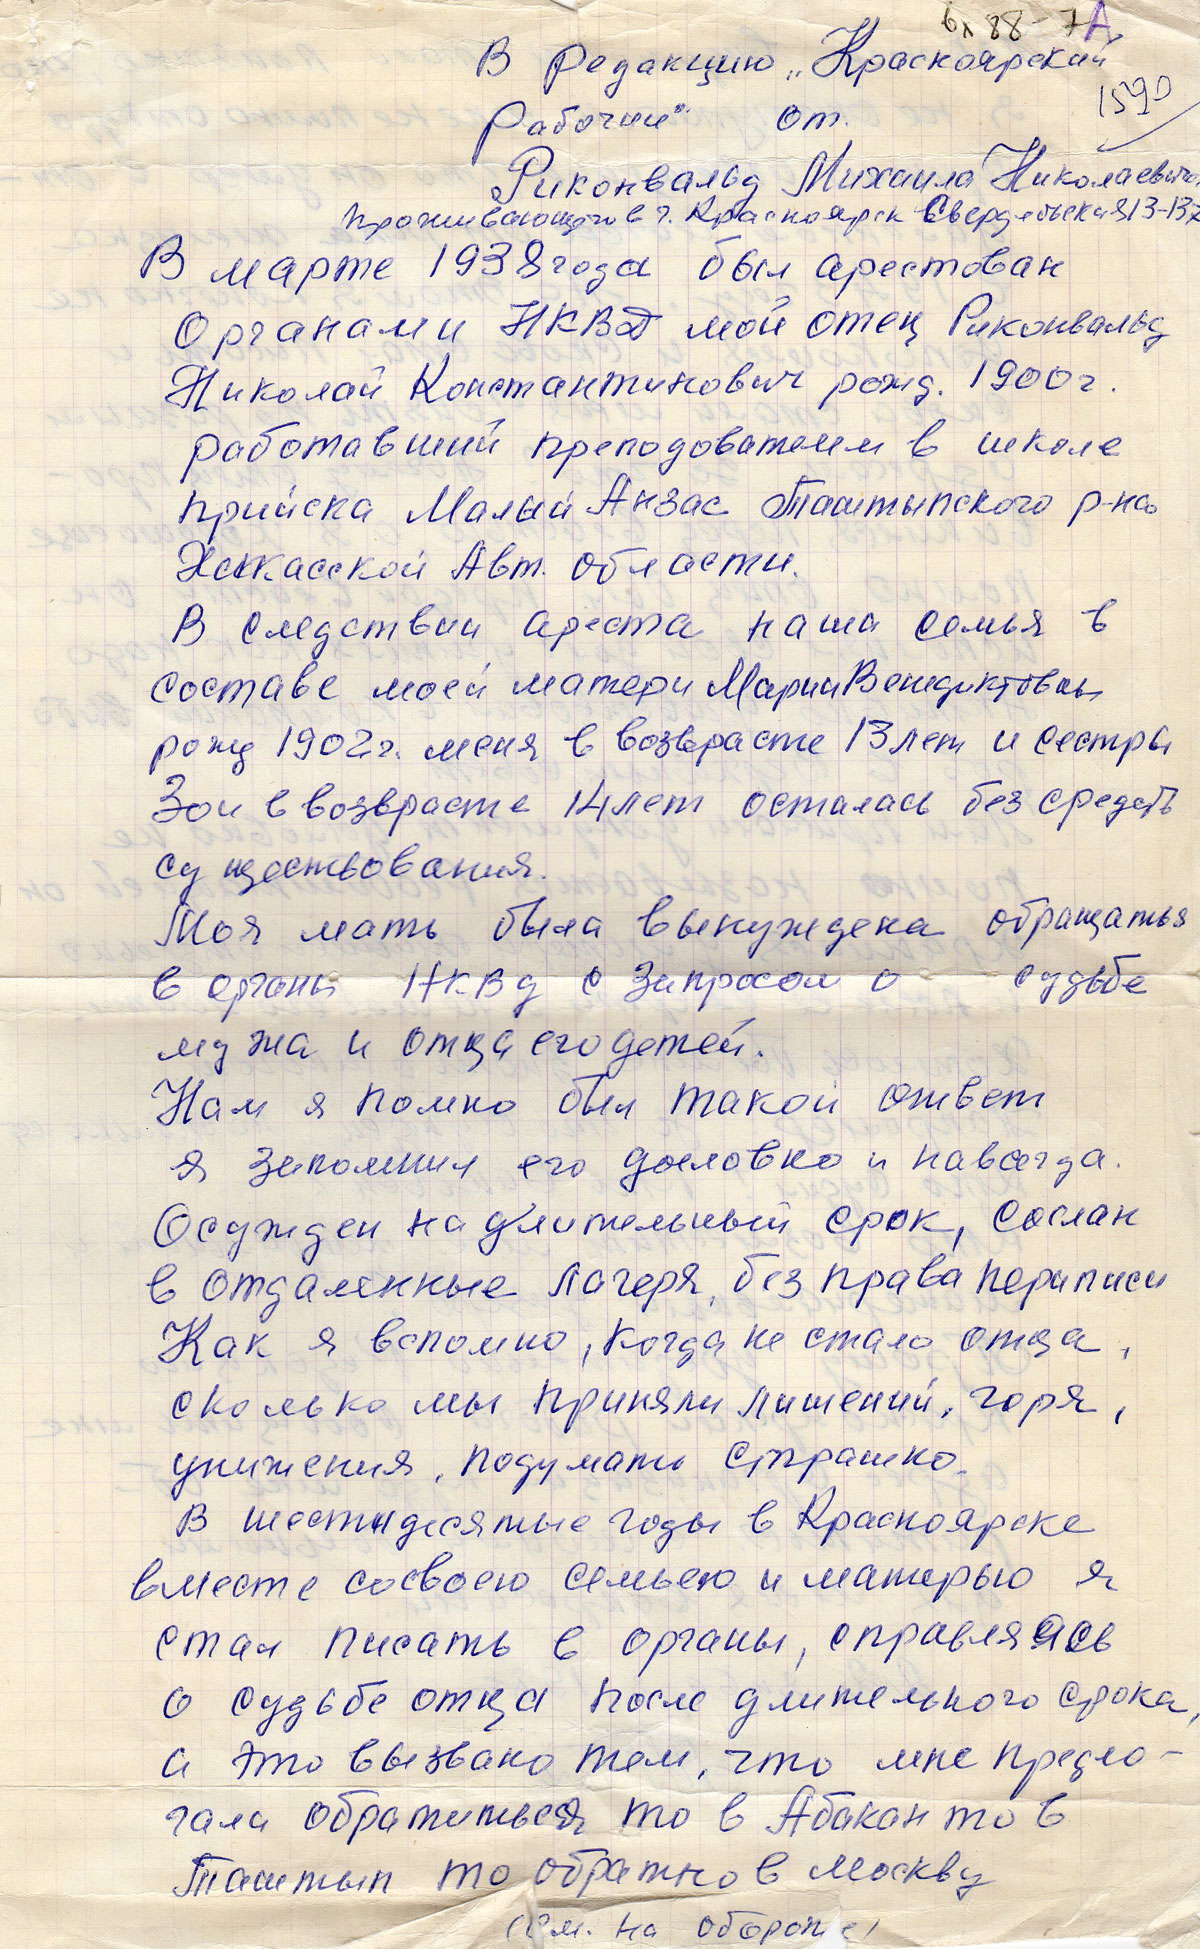 вх 88-7А
В редакцию „Красноярский
1590
Рабочий" от.
Риконвальд Михаила Николаевича
проживающего в г. Красноярск Свердловская 13-137
В марте 1938 года был арестован
Органами НКВД мой отец Риконвальд
Николай Константинович рожд. 1900 г.
работавший преподователем в школе
прииска Малый Анзас Таштыпского р-на
Хакасской Авт. области.
В следствии ареста наша семья в
составе моей матери Марии Венедиктовны
рожд 1902 г. меня в возврасте 13 лет и сестры
Зои в возврасте 14 лет осталась без средств
существования.
Моя мать была вынуждена обращаться
в органы НКВД с запросом о судьбе
мужа и отца его детей.
Нам я помню был такой ответ
я запомнил его дословно и навсегда.
Осужден на длительный срок, сослан
в отдаленные лагеря, без права переписи
Как я вспомню, когда не стало отца,
сколько мы приняли лишений, горя,
унижения, подумать страшно.
В шестидесятые годы в Красноярске
вместе со своею семьею и матерью я
стал писать в органы, справляясь
о судьбе отца после длительного срока,
а это вызвано тем, что мне предло-
гали обратиться то в Абакан то в
Таштып то обратно в Москву
(См. на обороте)